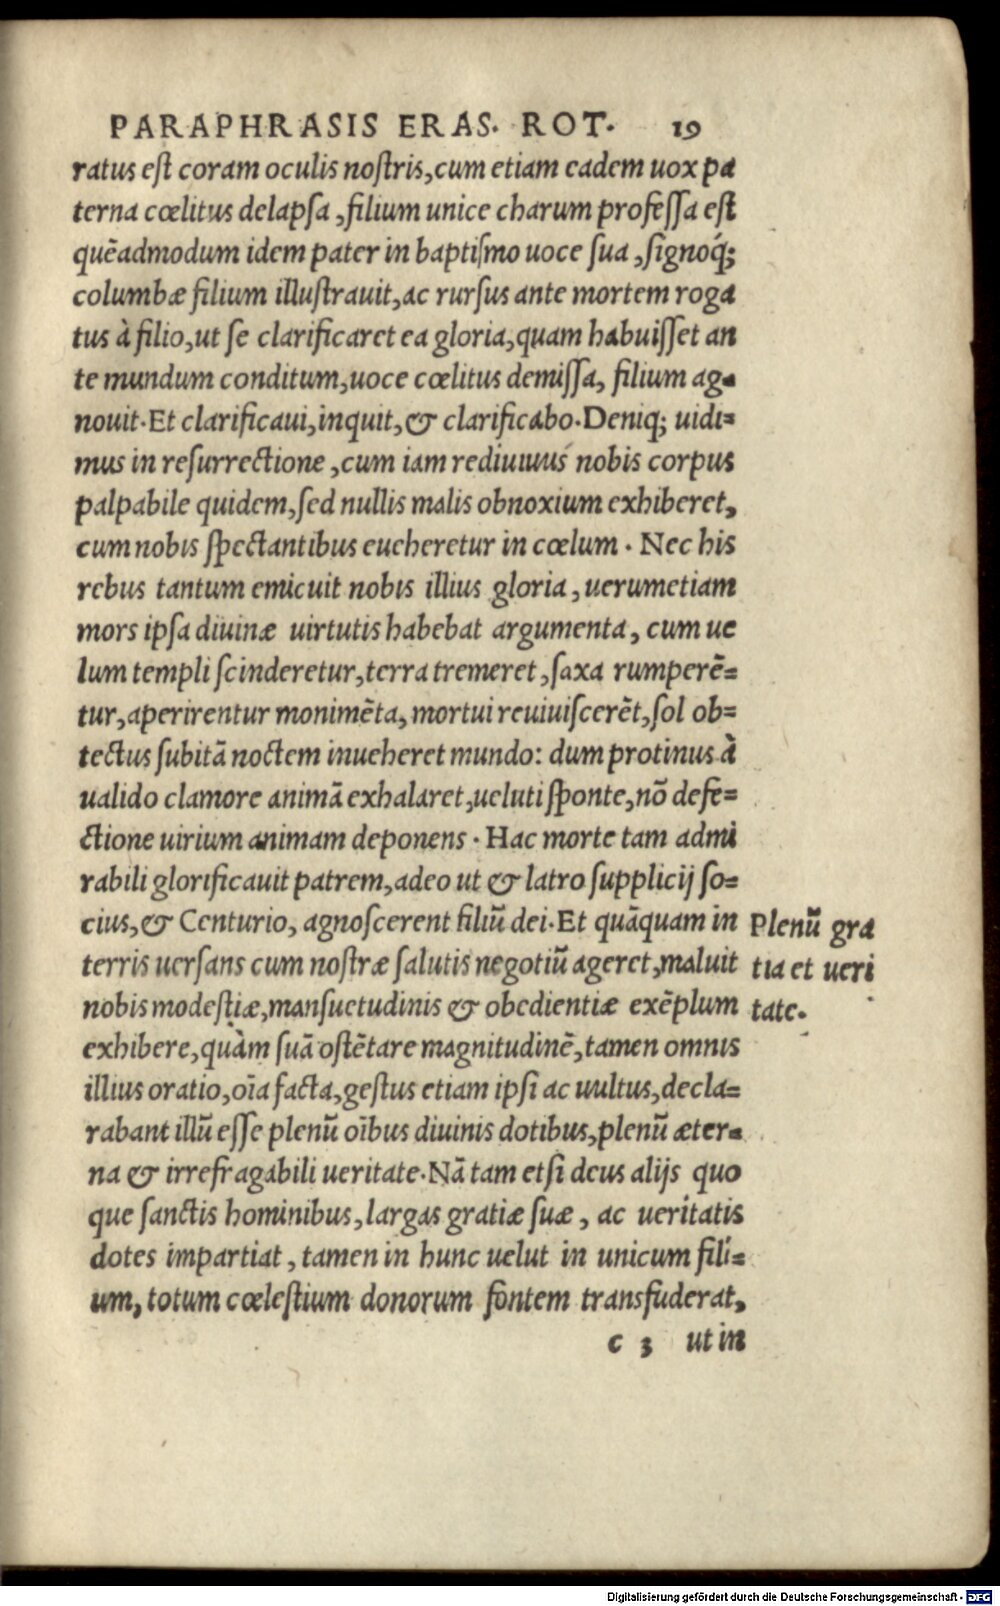 PARAPHRASIS ERAS. ROT. 19
ratus est coram oculis nostris, cum etiam eadem uox pa
terna cœlitus delapsa, filium unice charum professa est
quēadmodum idem pater in baptismo uoce sua, signoq́;
columbæ filium illustrauit, ac rursus ante mortem roga
tus à filio, ut se clarificaret ea gloria, quam habuisset an
te mundum conditum, uoce cœlitus demissa, filium ag-
nouit. Et clarificaui, inquit, & clarificabo. Deniq; uidi=
mus in resurrectione, cum iam rediuiuus nobis corpus
palpabile quidem, sed nullis malis obnoxium exhiberet,
cum nobis spectantibus eueheretur in cœlum. Nec his
rebus tantum emicuit nobis illius gloria, uerumetiam
mors ipsa diuinæ uirtutis habebat argumenta, cum ue
lum templi scinderetur, terra tremeret, saxa rumperē=
tur, aperirentur monimēta, mortui reuiuiscerēt, sol ob=
tectus subitā noctem inueheret mundo: dum protinus à
ualido clamore animā exhalaret, ueluti sponte, nō defe=
ctione uirium animam deponens. Hac morte tam admi
rabili glorificauit patrem, adeo ut & latro supplicij so=
cius, & Centurio, agnoscerent filiū dei. Et quāquam in
terris uersans cum nostræ salutis negotiū ageret, maluit
nobis modestiæ, mansuetudinis & obedientiæ exēplum
exhibere, quàm suā ostētare magnitudinē, tamen omnis
illius oratio, oīa facta, gestus etiam ipsi ac uultus, decla=
rabant illū esse plenū oībus diuinis dotibus, plenū æter-
na & irrefragabili ueritate. Nā tam etsi deus alijs quo
que sanctis hominibus, largas gratiæ suæ, ac ueritatis
dotes impartiat, tamen in hunc uelut in unicum fili=
um, totum cœlestium donorum fontem transfuderat,
c 3 ut in
Plenū gra
tia et ueri
tate.
Digitalisierung gefördert durch die Deutsche Forschungsgemeinschaft - DFG